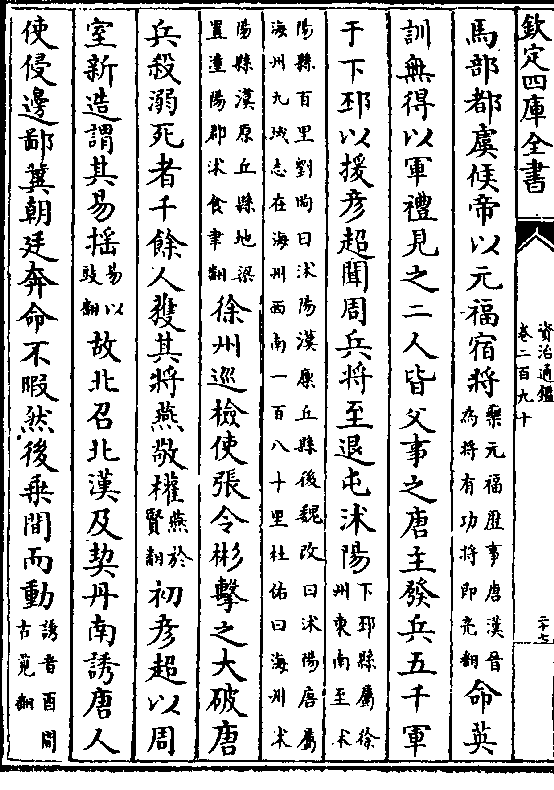 欽定四庫全書
資治通鑑
卷二百九十
二十七
馬部都虞候帝以元福宿將藥元福歷事唐漢晉為將有功將即亮翻命英
訓無得以軍禮見之二人皆父事之唐主發兵五千軍
于下邳以援彦超聞周兵將至退屯沭陽下邳縣屬徐州東南至沭
陽縣百里劉昫曰沭陽漢厚丘縣後魏改曰沭陽唐屬海州九域志在海州西南一百八十里杜佑曰海州沭
陽縣漢厚丘縣地梁置潼陽郡沭食聿翻徐州巡檢使張令彬擊之大破唐
兵殺溺死者千餘人獲其將燕敬權燕於賢翻初彦超以周
室新造謂其易揺易以豉翻故北召北漢及契丹南誘唐人
使侵邊鄙冀朝廷奔命不暇然後乗間而動誘音酉間古莧翻